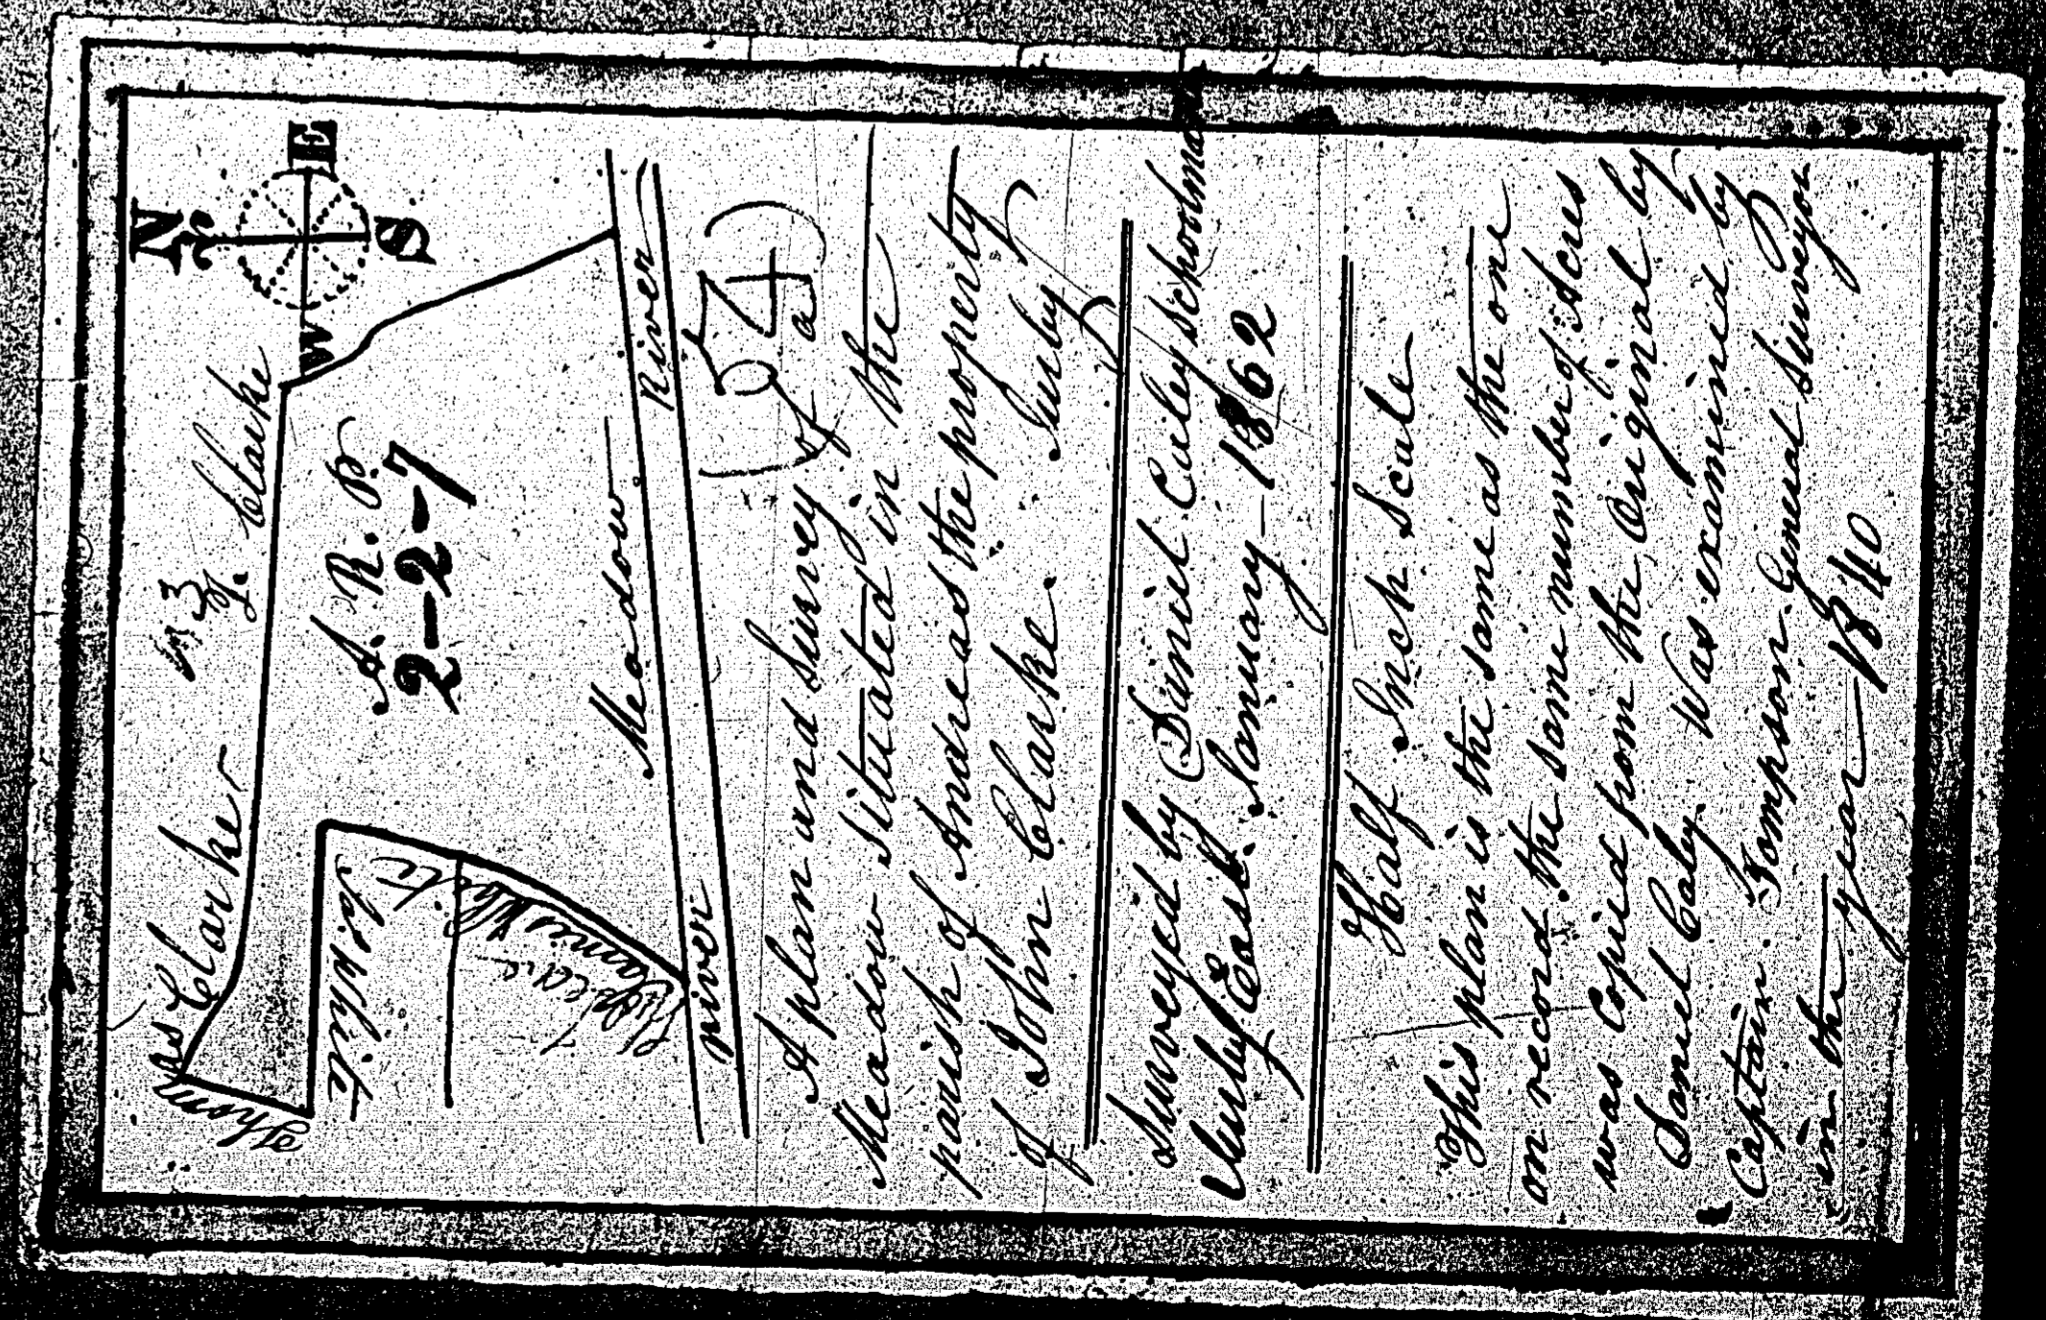 N
W E
S
Thomas Clarke
T. Clarke
A. R. P.
2-2-7
Jas. White
James White
Meadow
River
River
(54)
A plan and Survey of a
Meadow situated in the
parish of Andreas the property
of John Clarke. Jurby
Surveyed by Daniel Caley Schoolmaster
Jurby East. January - 1862
Half Inch Scale
This plan is the same as the one
on record. the same number of Acres
was Copied from the Original by
Daniel Caley. Was examined by
Captain. Tompson. General Surveyor
in the year 1840